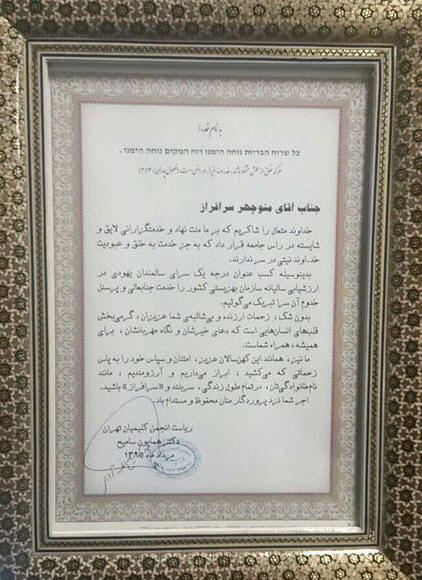 به نام خدا
כל שרוח הבריות נוחה הימנו רוח המקום נוחה הימנו .
جناب آقای منوچهر سرافراز
خداوند متعال را شاکریم که بر ما منت نهاد و خدمتگزارانی لایق و
شایسته در راس جامعه قرار داد که به جز خدمت به خلق و عبودیت
خداوند نیتی در سر ندارند.
بدینوسیله کسب عنوان درجه یک سرای سالمندان یهودی در
ارزشیابی سالیانه سازمان بهزیستی کشور را خدمت جنابعالی و پرسنل
خدوم آن سرا تبریک می‌گوئیم.
بدون شک، زحمات ارزنده و بی‌شائبه‌ی شما عزیزان، گرمی‌بخش
قلبهای انسان‌هایی است که دعای خیرشان و نگاه مهربانشان، برای
همیشه، همراه شماست.
ما نیز، همانند این کهن‌سالان عزیز، امتنان و سپاس خود را به پاس
زحماتی که می‌کشید، ابراز می‌داریم و آرزومندیم، مانند
نام‌خانوادگی‌تان، در تمام طول زندگی، سربلند و «سرافراز» باشید.
اجر شما نزد پروردگار منان محفوظ و مستدام باد.
ریاست انجمن کلیمیان تهران
دکتر همایون سامیح
مرداد ماه ۱۳۹۵